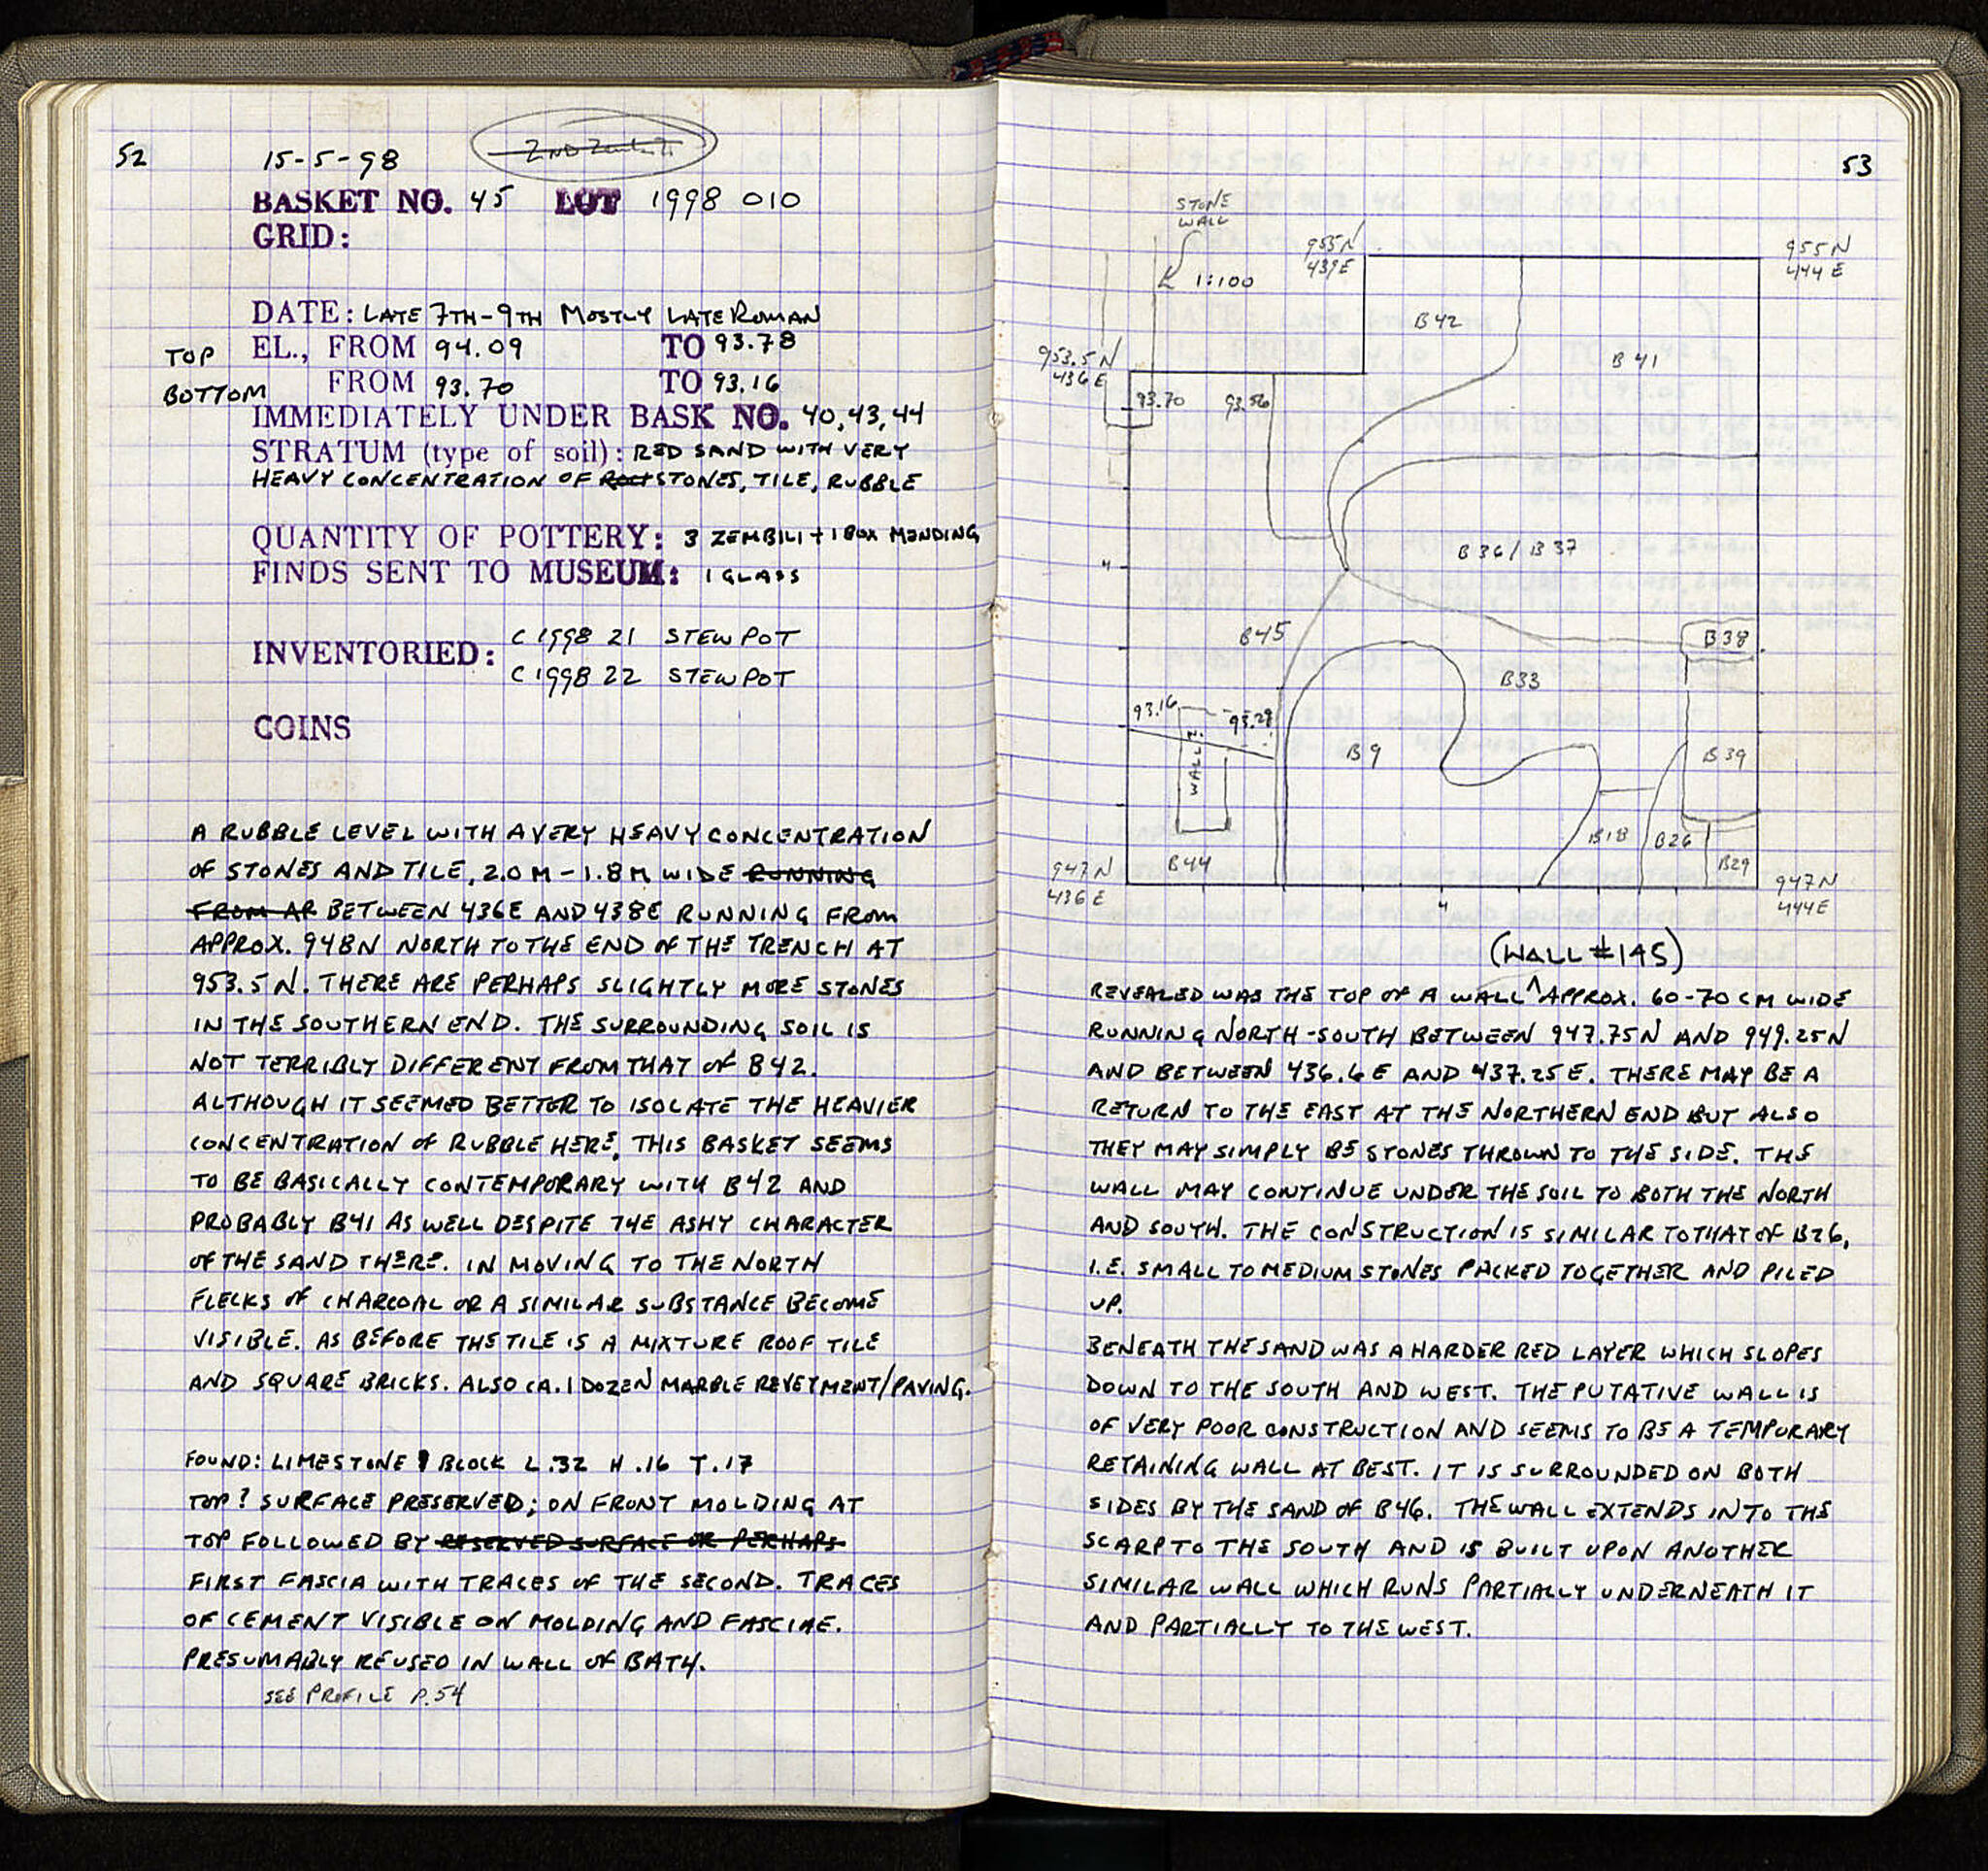 52
15-5-98
BASKET NO. 45 LOT 1998 010
GRID:
DATE: LATE 7TH-9TH MOSTLY LATE ROMAN
TOP EL., FROM 94.09 TO 93.78
BOTTOM FROM 93.70 TO 93.16
IMMEDIATELY UNDER BASK NO. 40,43,44
STRATUM (type of soil): RED SAND WITH VERY
HEAVY CONCENTRATION OF STONES, TILE, RUBBLE
QUANTITY OF POTTERY: 3 ZEMBILI + 1 BOX MENDING
FINDS SENT TO MUSEUM: 1 GLASS
INVENTORIED: C 1998 21 STEW POT
C 1998 22 STEW POT
COINS
A RUBBLE LEVEL WITH A VERY HEAVY CONCENTRATION
OF STONES AND TILE, 2.0 M - 1.8 M WIDE RUNNING
FROM AP BETWEEN 436E AND 438E RUNNING FROM
APPROX. 948N NORTH TO THE END OF THE TRENCH AT
953.5 N. THERE ARE PERHAPS SLIGHTLY MORE STONES
IN THE SOUTHERN END. THE SURROUNDING SOIL IS
NOT TERRIBLY DIFFERENT FROM THAT OF B42.
ALTHOUGH IT SEEMED BETTER TO ISOLATE THE HEAVIER
CONCENTRATION OF RUBBLE HERE, THIS BASKET SEEMS
TO BE BASICALLY CONTEMPORARY WITH B42 AND
PROBABLY B41 AS WELL DESPITE THE ASHY CHARACTER
OF THE SAND THERE. IN MOVING TO THE NORTH
FLECKS OF CHARCOAL OR A SIMILAR SUBSTANCE BECOME
VISIBLE. AS BEFORE THE TILE IS A MIXTURE ROOF TILE
AND SQUARE BRICKS. ALSO CA. 1 DOZEN MARBLE REVETMENT/PAVING.
FOUND: LIMESTONE BLOCK L .32 H .16 T .17
TOP? SURFACE PRESERVED; ON FRONT MOLDING AT
TOP FOLLOWED BY RESERVED SURFACE OR PERHAPS
FIRST FASCIA WITH TRACES OF THE SECOND. TRACES
OF CEMENT VISIBLE ON MOLDING AND FASCIAE.
PRESUMABLY REUSED IN WALL OF BATH.
SEE PROFILE P. 54
53
STONE
WALL
1:100
955N
439E
955N
444E
B42
B41
953.5N
436E
93.70
93.56
4
B36/B37
B45
B38
B33
93.16
93.29
WALL?
B9
B39
B18
B26
B29
B44
947N
436E
4
947N
444E
(WALL #145)
REVEALED WAS THE TOP OF A WALL ^ APPROX. 60-70 CM WIDE
RUNNING NORTH-SOUTH BETWEEN 947.75N AND 949.25N
AND BETWEEN 436.6E AND 437.25E. THERE MAY BE A
RETURN TO THE EAST AT THE NORTHERN END BUT ALSO
THEY MAY SIMPLY BE STONES THROWN TO THE SIDE. THE
WALL MAY CONTINUE UNDER THE SOIL TO BOTH THE NORTH
AND SOUTH. THE CONSTRUCTION IS SIMILAR TO THAT OF B26,
I.E. SMALL TO MEDIUM STONES PACKED TOGETHER AND PILED
UP.
BENEATH THE SAND WAS A HARDER RED LAYER WHICH SLOPES
DOWN TO THE SOUTH AND WEST. THE PUTATIVE WALL IS
OF VERY POOR CONSTRUCTION AND SEEMS TO BE A TEMPORARY
RETAINING WALL AT BEST. IT IS SURROUNDED ON BOTH
SIDES BY THE SAND OF B46. THE WALL EXTENDS INTO THE
SCARP TO THE SOUTH AND IS BUILT UPON ANOTHER
SIMILAR WALL WHICH RUNS PARTIALLY UNDERNEATH IT
AND PARTIALLY TO THE WEST.